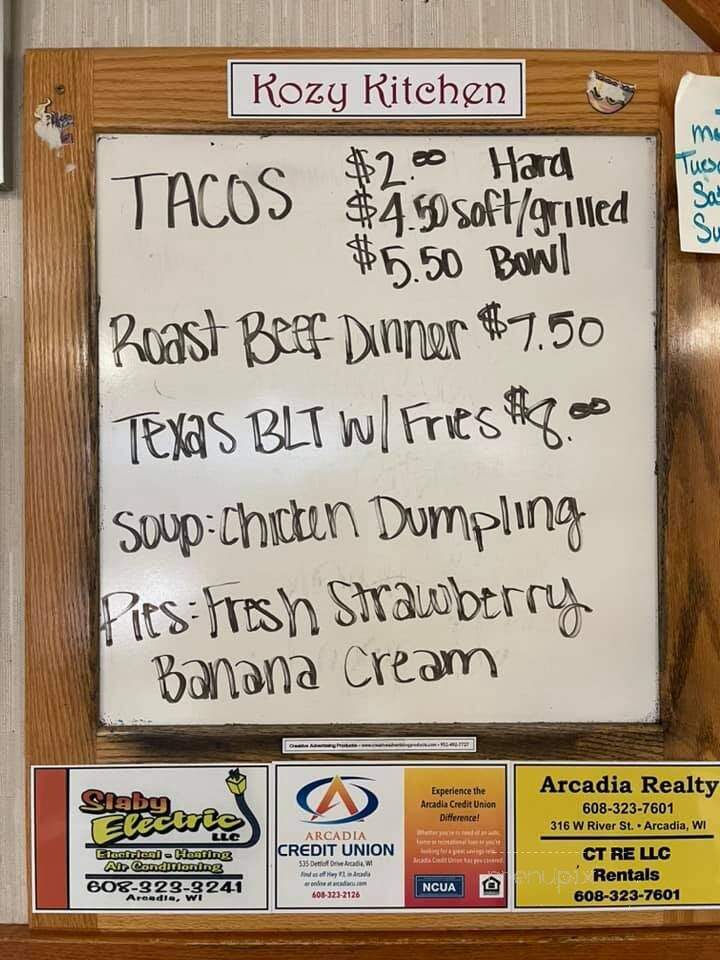 Kozy Kitchen
TACOS $2.00 Hard
$4.50 soft/grilled
$5.50 Bowl
Roast Beef Dinner $7.50
Texas BLT w/ Fries $8.00
Soup: Chicken Dumpling
Pies: Fresh Strawberry
Banana Cream
Tues
Sa
Su
Slaby
Electric LLC
Electrical - Heating
Air Conditioning
608-323-3241
Arcadia, WI
ARCADIA
CREDIT UNION
535 Dettloff Drive Arcadia, WI
Find us off Hwy 93, in Arcadia
or online at arcadiacu.com
608-323-2126
Experience the
Arcadia Credit Union
Difference!
Whether you're in need of an auto,
home or recreational loan or you're
looking for a great savings rate,
Arcadia Credit Union has you covered.
NCUA
Arcadia Realty
608-323-7601
316 W River St. • Arcadia, WI
CT RE LLC
Rentals
608-323-7601
menupix